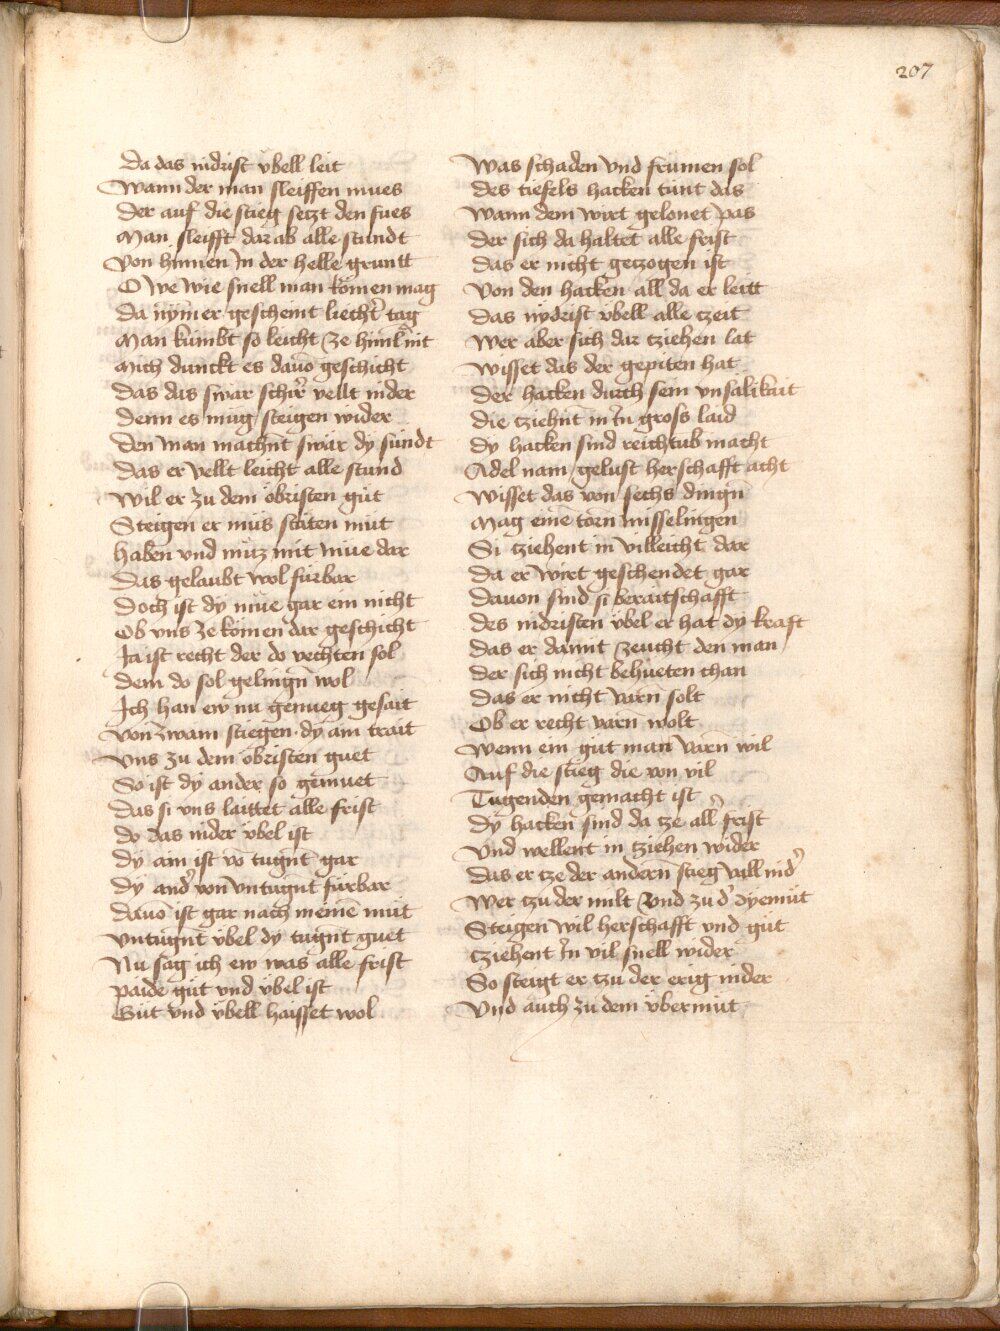 207
Da das nidrist vbell leit
Wann der man sleiffen mues
Der auf die stieg setzt den fues
Man sleifft dar ab alle stundt
Von hinnen Jn der helle gruntt
O we wie snell man kömen mag
Da nÿmer gescheint liechtˀ tag
Man kümbt so leicht ze himl nit
Mich dunckt es dauō geschicht
Das das swär schirˀ vellt nider
Denn es müg steigen wider
Den man machn̄t swär dy sündt
Das er vellt leicht alle stund
Wil er zu dem öbristen güt
Steigen er müs stäten müt
haben vnd müz mit müe dar
Das gelaubt wol fürbar
Doch ist dÿ müe gar ein nicht
Ob vns ze kömen dar geschicht
Ja ist recht der do vechten sol
Dem do sol gelingn̄ wol
Jch han ew nu genueg gesait
Von zwain stiegen dÿ ain trait
Vns zu dem öbristen guet
So ist dÿ ander so gemuet
Das si vns laittet alle frist
do das nider vbel ist
Dÿ ain ist vō tugn̄t gar
Dÿ andˀ von vntugn̄t fürbar
Dauō ist gar nach meinē müt
Vntugn̄t übel dy tugn̄t guet
Nu sag ich ew was alle frist
paide güt vnd vbel ist
Güt vnd übell haisset wol
Was schaden vnd frumen sol
des tiefels hacken tünt das
Wann dem wirt gelonet pas
der sich da haltet alle frist
das er nicht gezogen ist
Von den hacken all da er leitt
das nÿdrist vbell alle czeit
Wer aber sich dar tziehen lat
Wisset das der gepiten hat
Der hacken durch sein vnsälikait
die tziehn̄t in Jn̄ gross laid
dy hacken sind reichtub macht
Adel nam gelust herschafft acht
Wisset das von sechs dingn̄
Mag einē torn̄ misselingen
Si tziehent in villeicht dar
Da er wirt geschendet gar
Dauon sind si beraitschafft
des nidristen vbel er hat dÿ kraft
das er damit zeucht den man
der sich nicht behüeten chan
das er nicht varn̄ solt
Ob er recht varn̄ wolt
Wenn ein güt man varn̄ wil
Auf die stieg die von vil
Tugenden gemacht ist
Dÿ hacken sind da tze allˀ frist
Vnd wellent in tziehen wider
Das er tze der andern̄ stieg vall nidˀ
Wer tzu der milt Vnd zu dˀ dÿemüt
Steigen wil herschafft vnd güt
tziehent Jn̄ vil snell wider
So steigt er tzu der erig nider
Vnd auch zu dem vbermüt